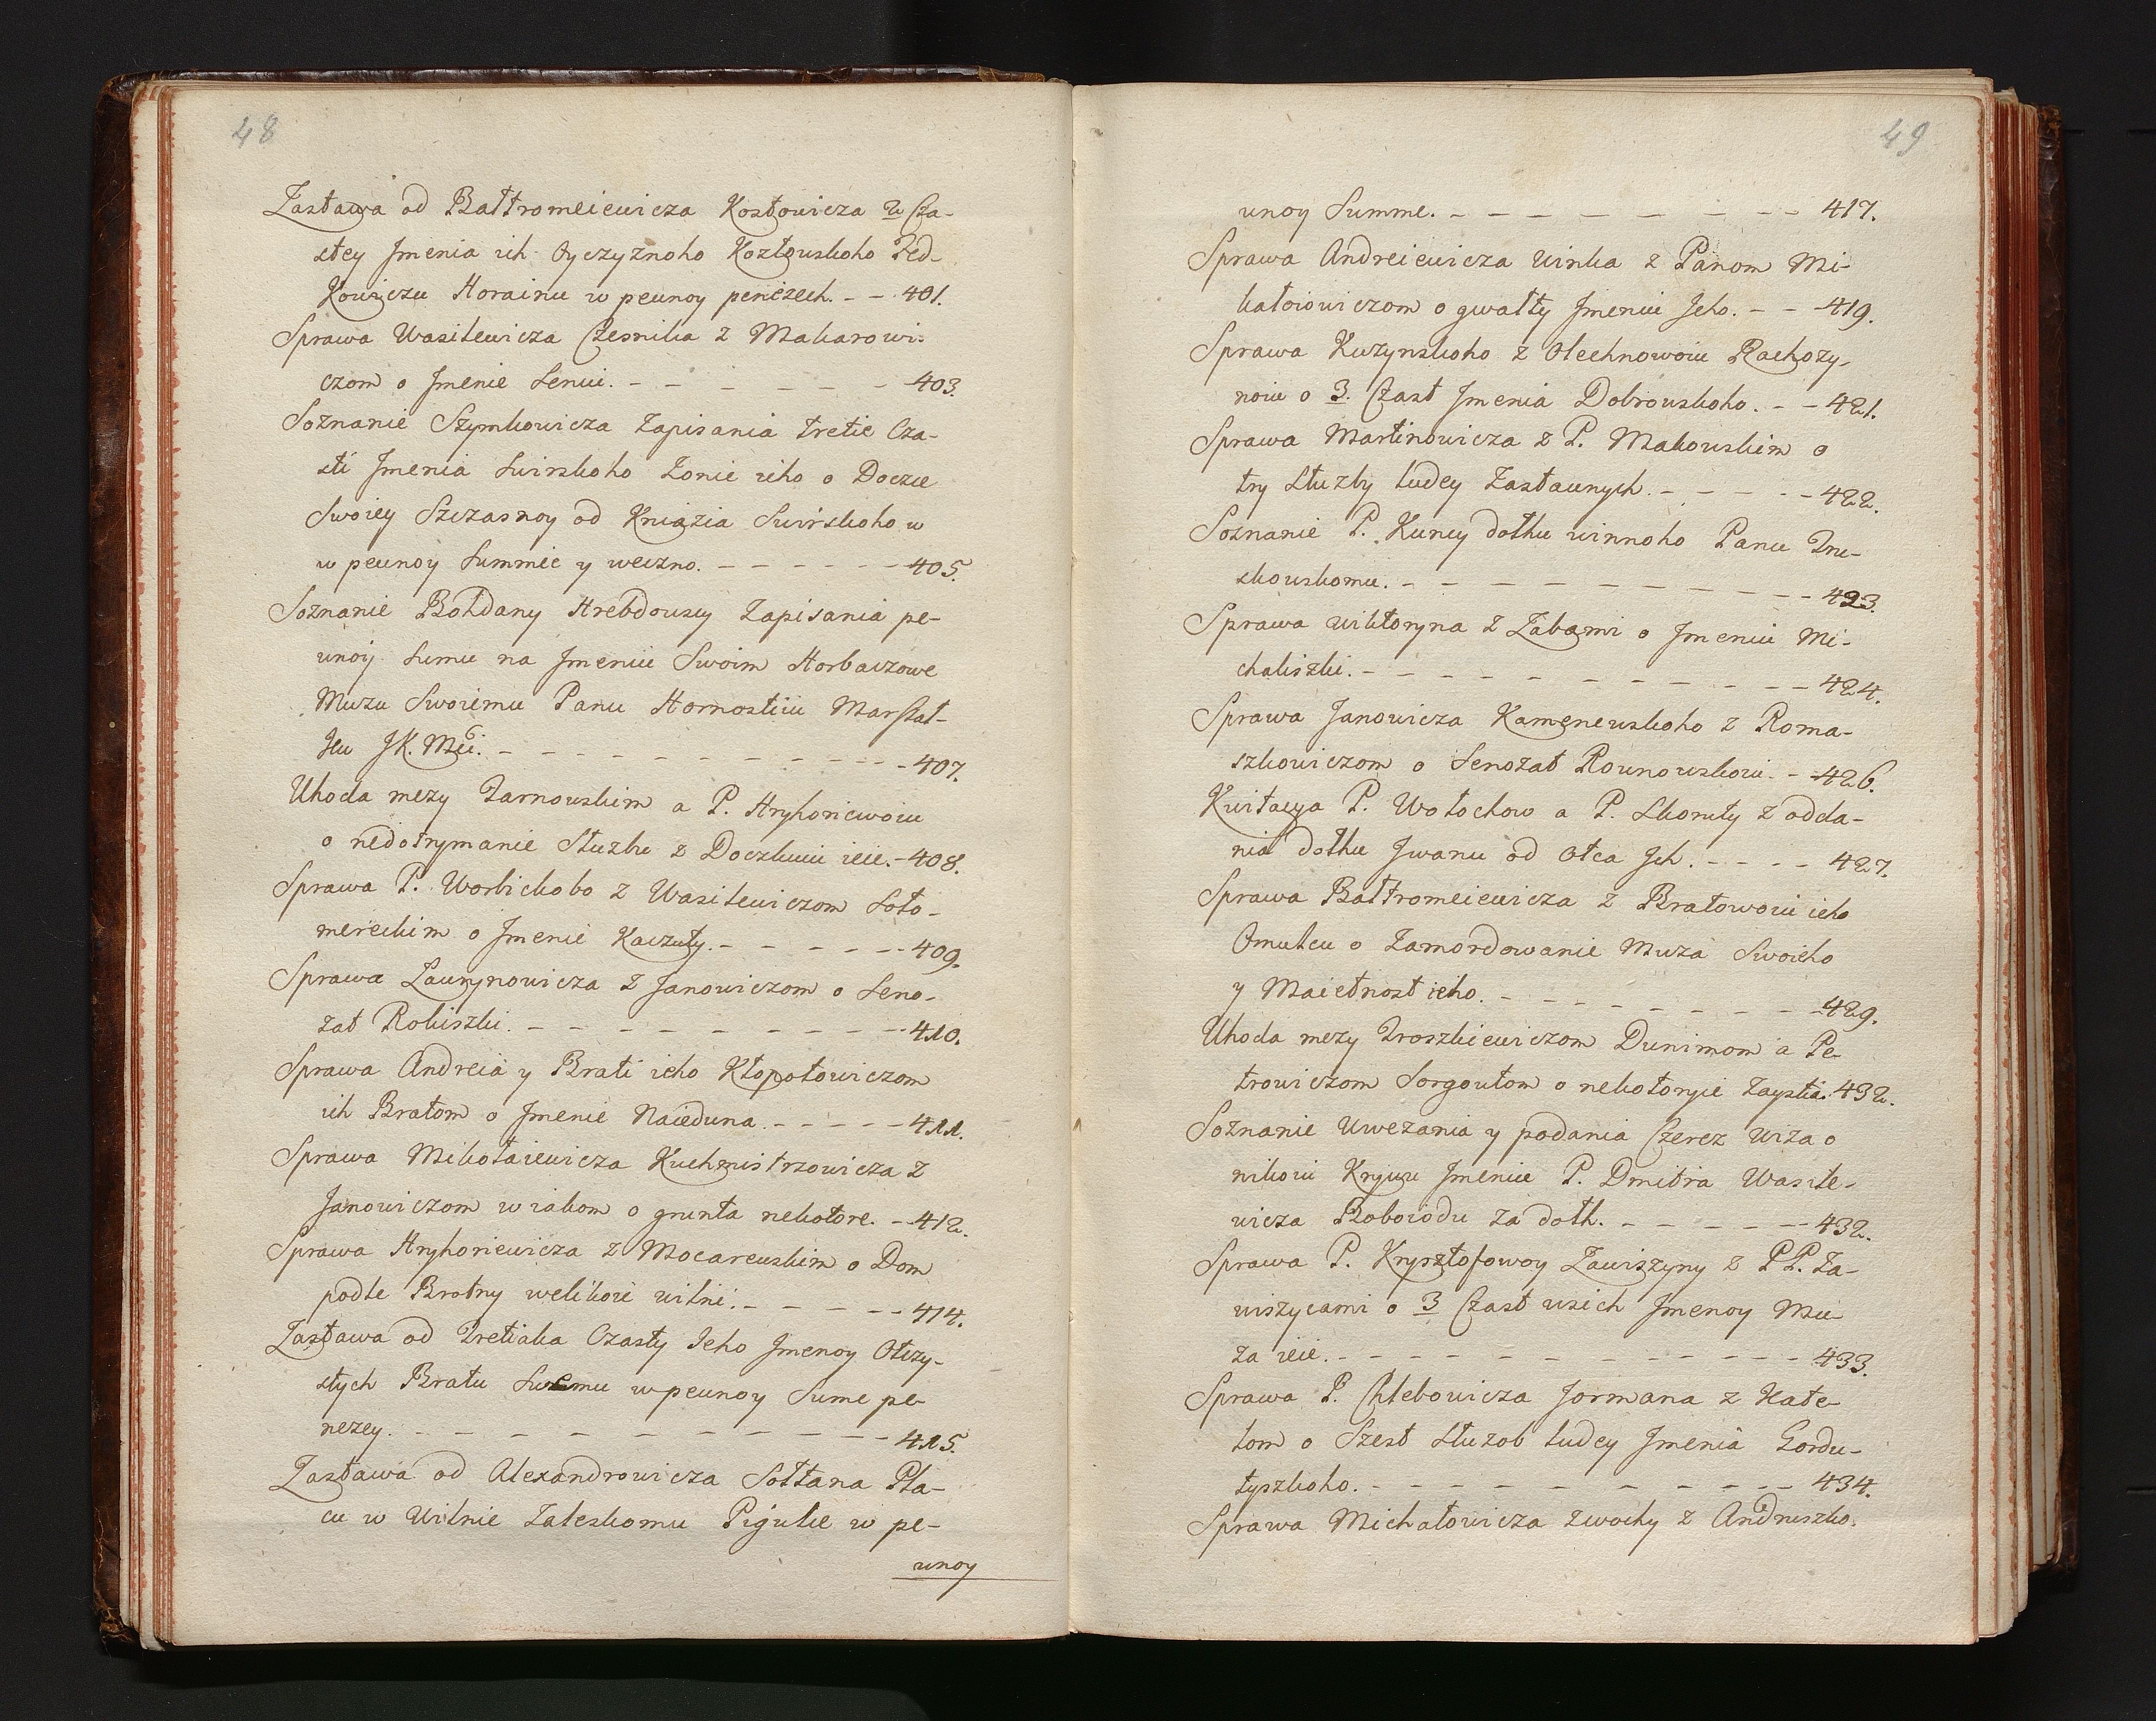 48
Zastawa od Bałtromeiewicza Kostowicza 2 Cza-
stey Jmenia ich Oyczyznoho Kozłowskoho Fed-
Kowiczu Horainu w pewnoy penezech. - - 401.
Sprawa Wasilewicza Czesnika z Makarowi-
czom o Jmenie Senui. - - - - - 403.
Soznanie Szymkowicza Zapisania tretie Cza-
sti Jmenia Swirskoho Żonie ieho o Doczce
Swoiey Szczasnoy od Kniazia Swirskoho w
w pewnoy Summie y weczno. - - - - - - 405.
Soznanie Bohdany Hrebdowscy Zapisania pe-
wnoy Sumu na Jmeniie Swoim Horbaczowe
Mużu Swoiemu Panu Hornostiiu Marszał-
ku JK. Mci. - - - - - - - - - - 407.
Uhoda mezy Tarnowskim a P. Hryhoriewoiu
o nedotrymanie Służbu z Doczkuiu ieie. - 408.
Sprawa P. Worbickoho z Wasilewiczom Soło-
mereckim o Jmenie Kaczuty. - - - - - - 409.
Sprawa Ławrynowicza z Janowiczom o Seno-
żat Robiszki. - - - - - - - - - - 410.
Sprawa Andreia y Brati ieho Kłopotowiczom
ich Bratom o Jmenie Naieduna. - - - - - 411.
Sprawa Mikołaiewicza Kuchmistrzowicza z
Janowiczom wiakom o grunta nekotore. - - 412.
Sprawa Hryhoriewicza z Mocarewskim o Dom
podle Bramy welikoie wilni. - - - - - 414.
Zastawa od Tretiaka Czasty Jeho Jmenoy Otczy-
stych Bratu Swemu w pewnoy Sume pe-
nezey. - - - - - - - - - - 415.
Zastawa od Alexandrowicza Sołtana Pla-
cu w Wilnie Zaleskomu Pigulie w pe-
wnoy
49
wnoy Summe. - - - - - - - - - 417.
Sprawa Andreiewicza Winka z Panom Mi-
kałoiowiczom o gwałty Jmeniu Jeho. - - - 419.
Sprawa Kuzynskoho z Olechnowoiu Rachozy-
noiu o 3. Czast Jmenia Dobrowskoho. - - 421.
Sprawa Martinowicza z P. Makowskim o
try Służby ludey Zastawnych. - - - - - 422.
Soznanie P. Kuncy dołhu winnoho Panu Tru-
skowskomu. - - - - - - - - - - - 423.
Sprawa wiktoryna z Żabami o Jmeniu Mi-
chaliszki. - - - - - - - - - - 424.
Sprawa Janowicza Kamenewskoho z Roma-
szkowiczom o Senożat Rownowskoiu. - - 426.
Kwitacya P. Wołochow a P. Skoruty z odda-
nia dołhu Jwanu od otca Jch. - - - - 427.
Sprawa Bałtromeiewicza z Bratowoiu ieho
Omulcu o Zamordowanie Muża Swoieho
y Maietnost ieho. - - - - - - - - 429.
Uhoda mezy Troszkiewiczom Dunimom a Pe-
trowiczom Sorgoutom o nekotoryie Zaystia. 432.
Soznanie Uwezania y podania Czerez Wiża o
nikoiu Krywu Jmeniie P. Dmitra Wasile-
wicza Roboiodu za dołh. - - - - - - 432.
Sprawa P. Krysztofowoy Zawiszyny z PP. Za-
wiszycami o 3 Czast wsich Jmenoy Mu-
ża ieie. - - - - - - - - - - - - 433.
Sprawa P. Chlebowicza Jormana z Hate-
lom o Szest Służob ludey Jmenia Gordu-
tyszkoho. - - - - - - - - - - 434.
Sprawa Michałowicza zwocky z Andruszko-